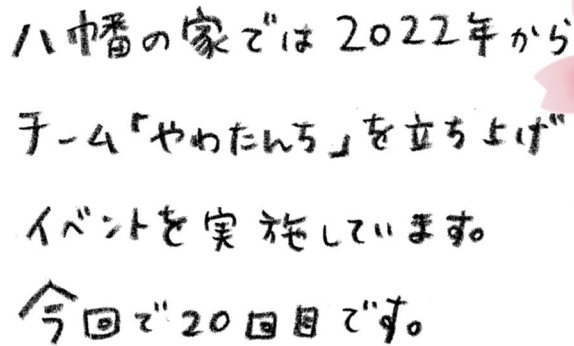 八幡の家では2022年から
チーム「やわたんち」を立ち上げ
イベントを実施しています。
今回で20回目です。